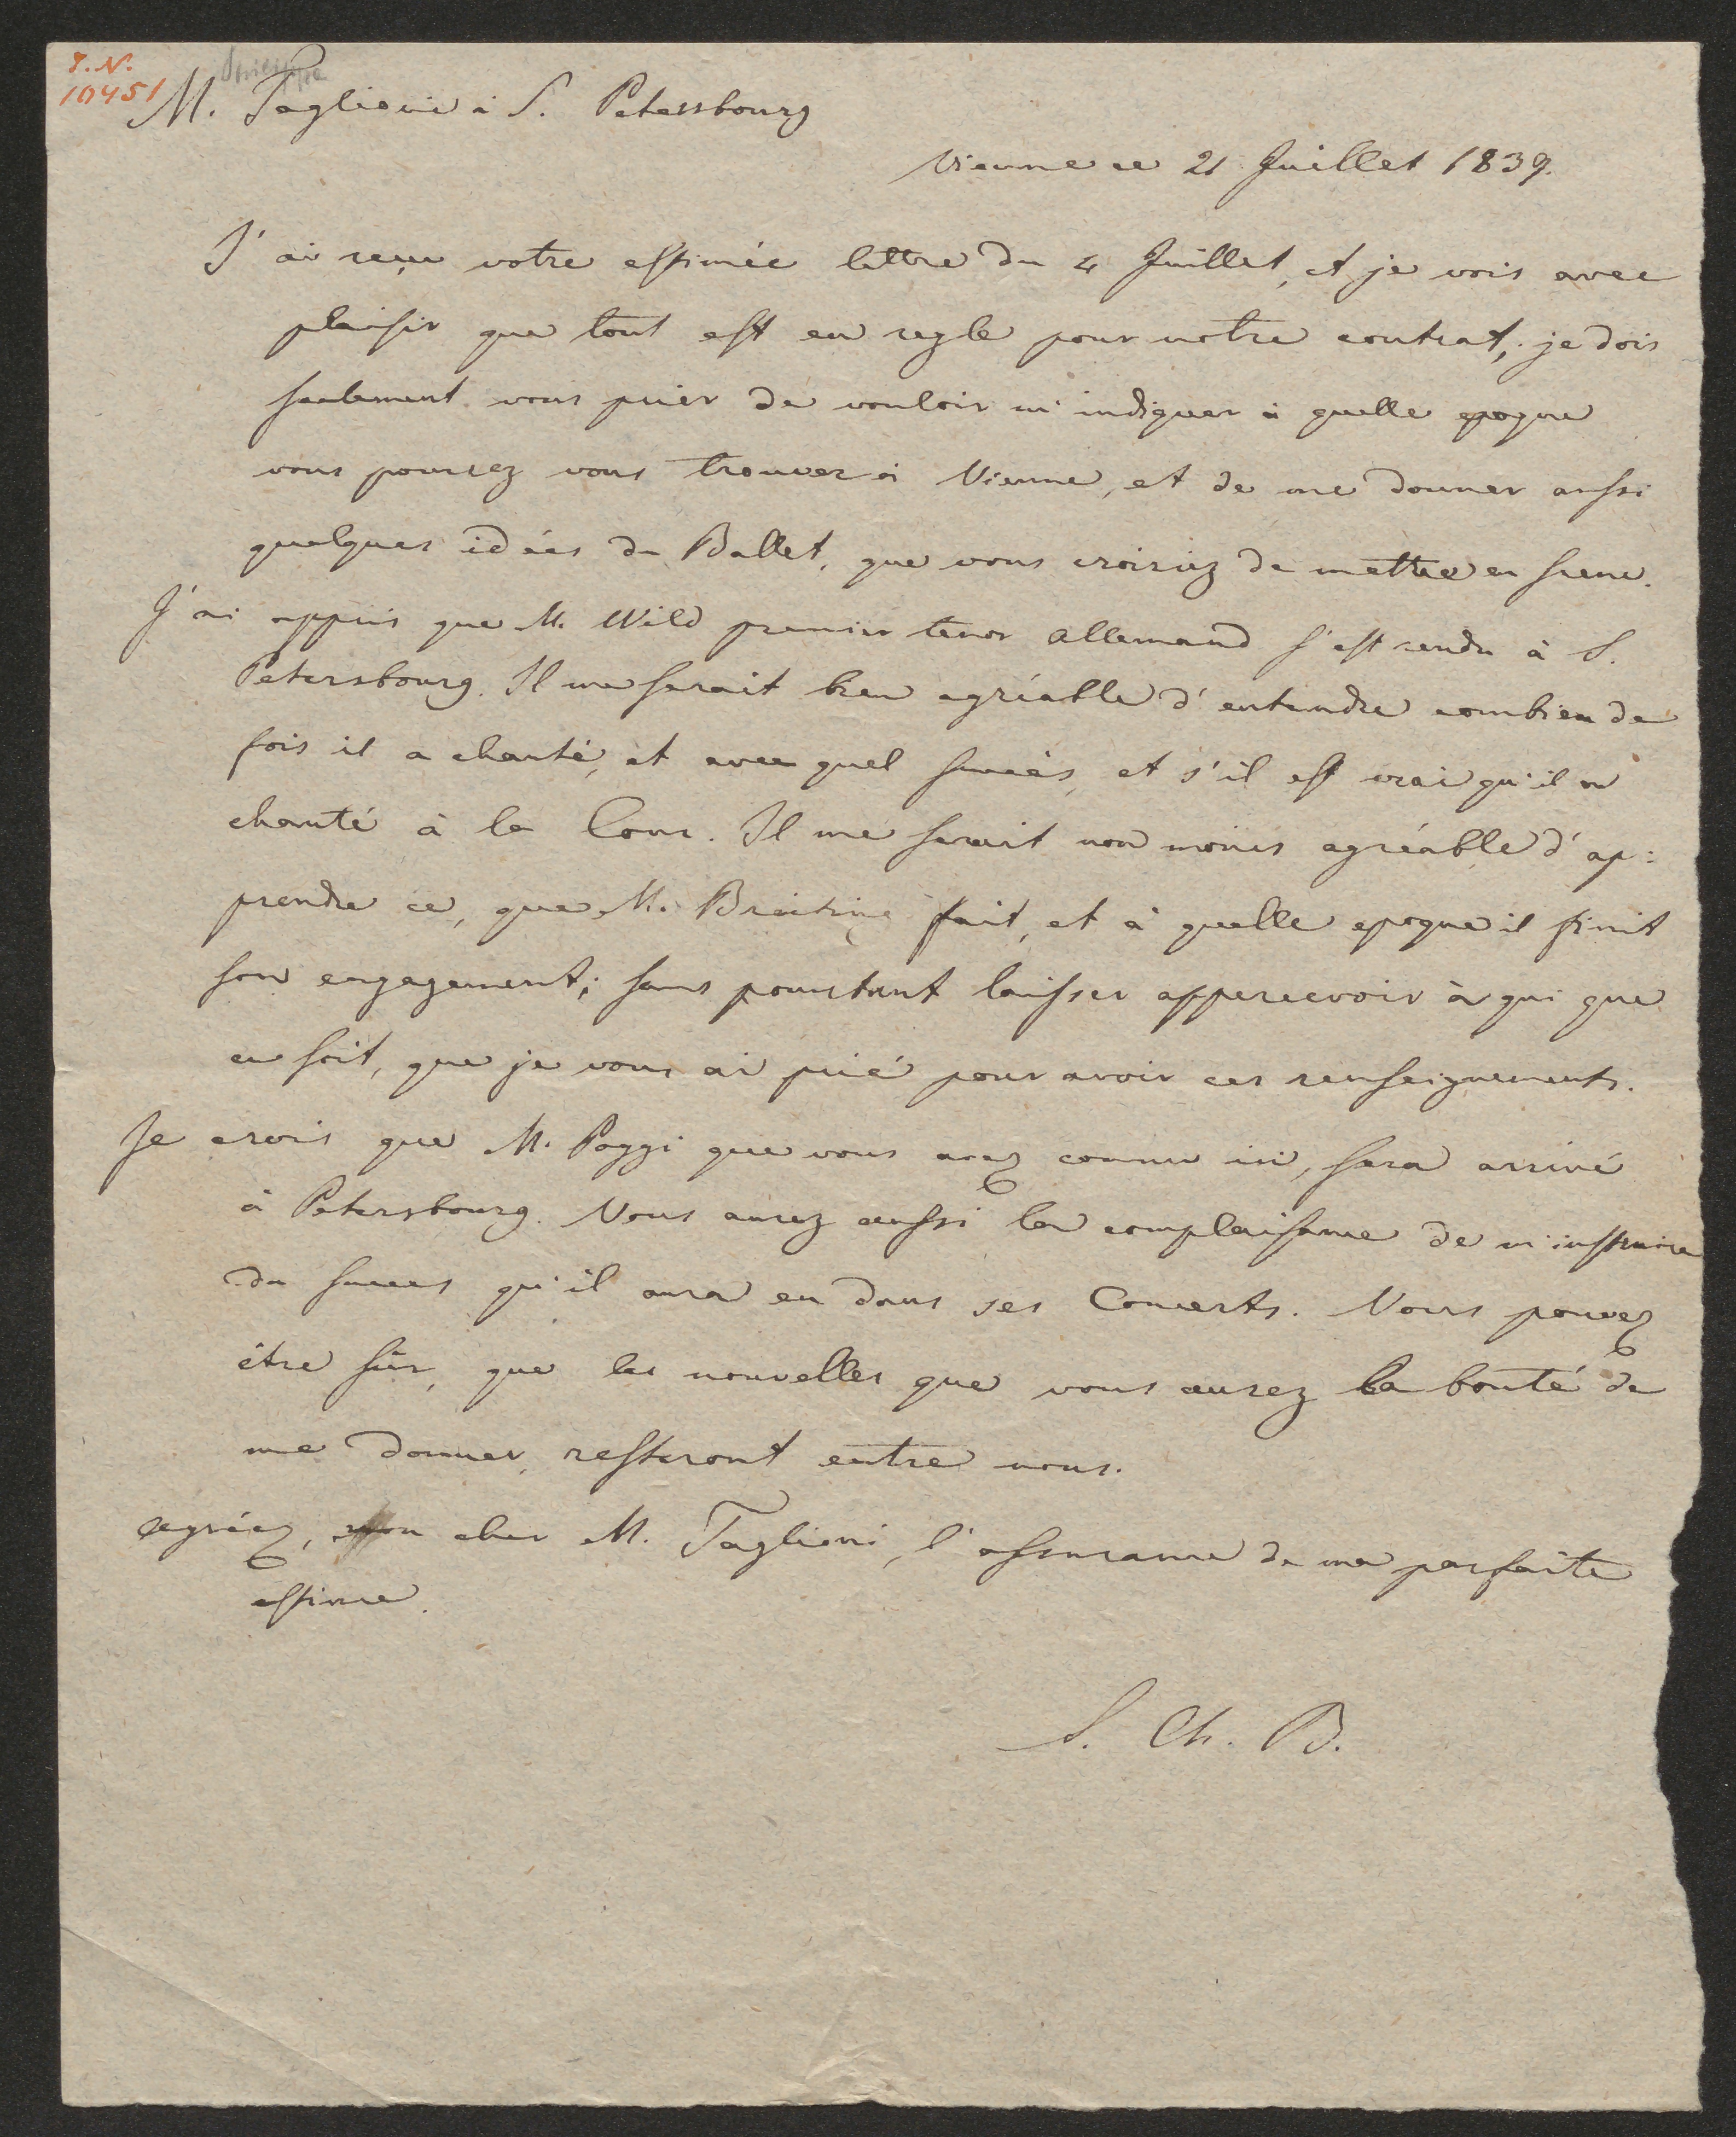 I.N.
10451
M. Taglioni à S. Petersbourg
Vienne ce 21 Juillet 1839.
J'ai reçu votre estimée lettre du 4 Juillet, et je vois avec
plaisir que tout est en regle pour notre contrat; je dois
seulement vous prier de vouloir m'indiquer à quelle epoque
vous pourrez vous trouver à Vienne, et de me donner aussi
quelques idées du Ballet, que vous croiriez de mettre en scene.
J'ai appris que M. Wild premier tenor allemand s'est rendu à S.
Petersbourg. Il me serait bien agréable d'entendre combien de
fois il a chanté, et avec quel succès, et s'il est vrai qu'il a
chanté à la Cour. Il me serait non moins agréable d'ap:
prendre ce, que M. Breiting fait, et à quelle epoque il finit
son engagement; sans pourtant laisser appercevoir à qui que
ce soit, que je vous ai prié pour avoir ces renseignements.
Je crois que M. Poggi que vous avez connu ici, sera arrivé
à Petersbourg. Vous aurez aussi la complaisance de m'instruire
du succes qu'il aura eu dans ses Concerts. Vous pouvez
être sûr, que les nouvelles que vous aurez la bonté de
me donner, resteront entre nous.
Agréez, mon cher M. Taglioni, l'assurance de ma parfaite
estime.
S. Ch. B.